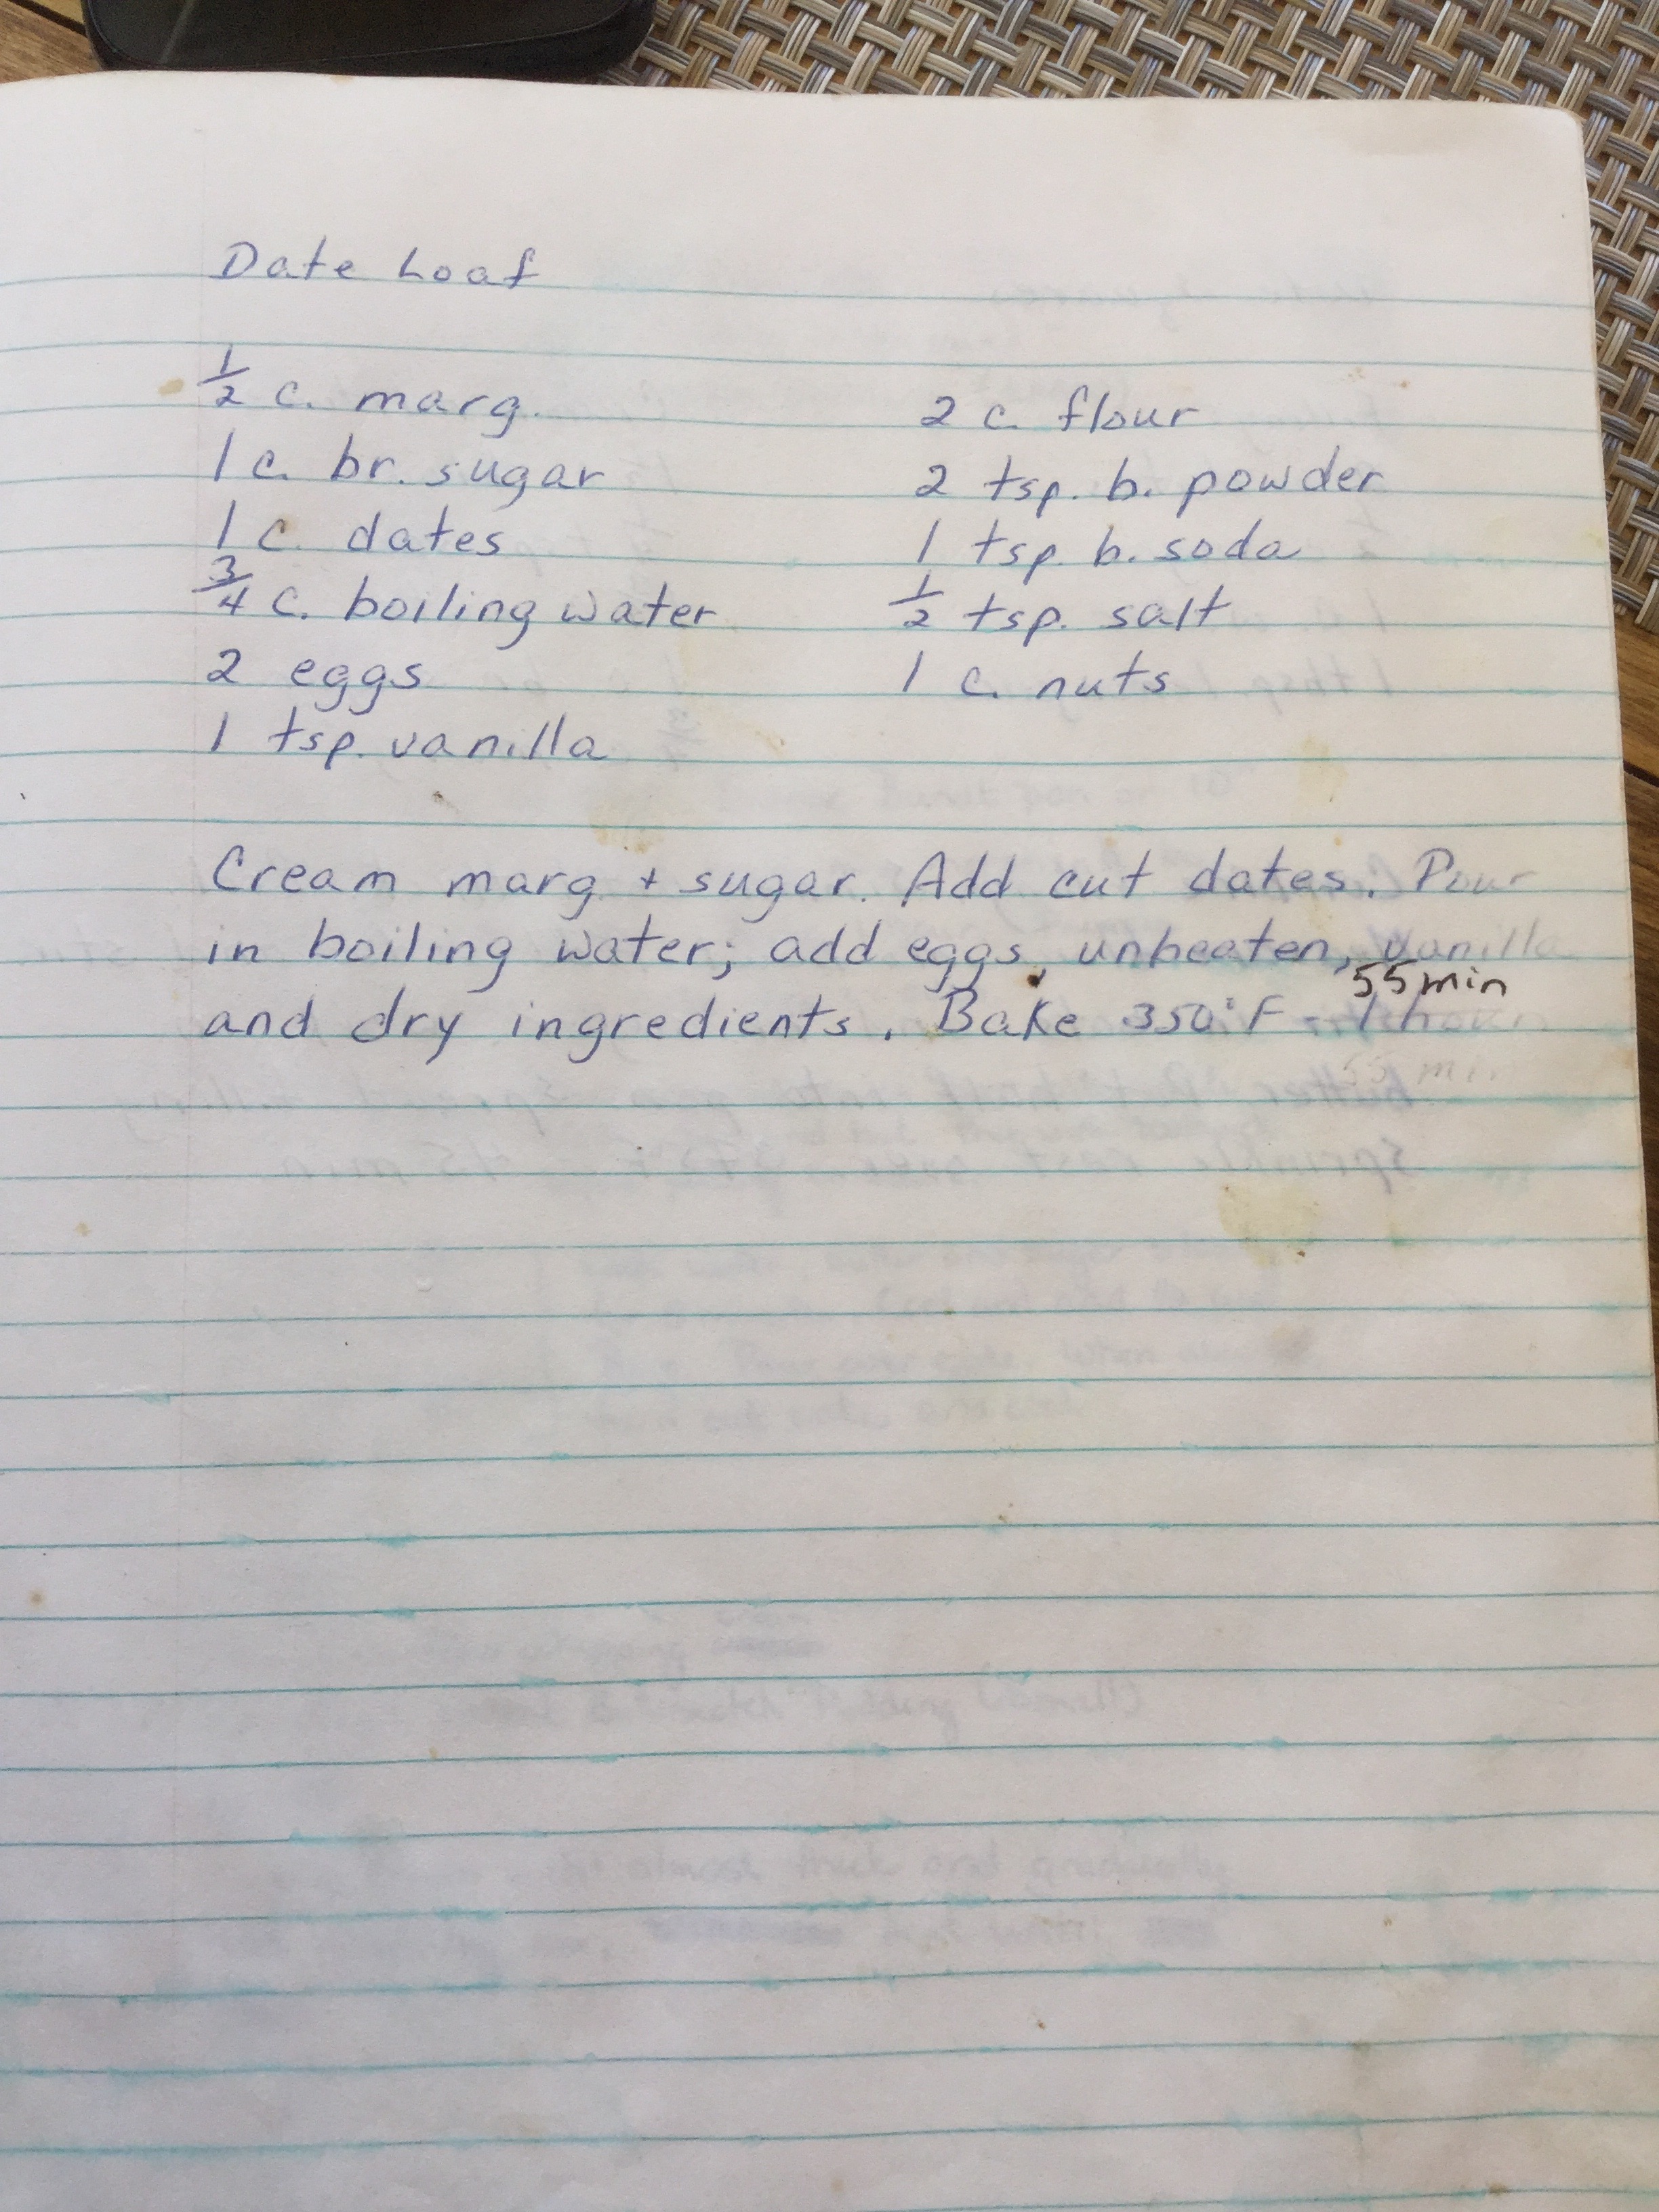 Date Loaf
1/2 c. marg.
1 c. br. sugar
1 c. dates
3/4 c. boiling water
2 eggs
1 tsp. vanilla
2 c. flour
2 tsp. b. powder
1 tsp. b. soda
1/2 tsp. salt
1 c. nuts
Cream marg + sugar. Add cut dates. Pour
in boiling water; add eggs, unbeaten, vanilla
55 min
and dry ingredients. Bake 350°F - 1 hour
55 min